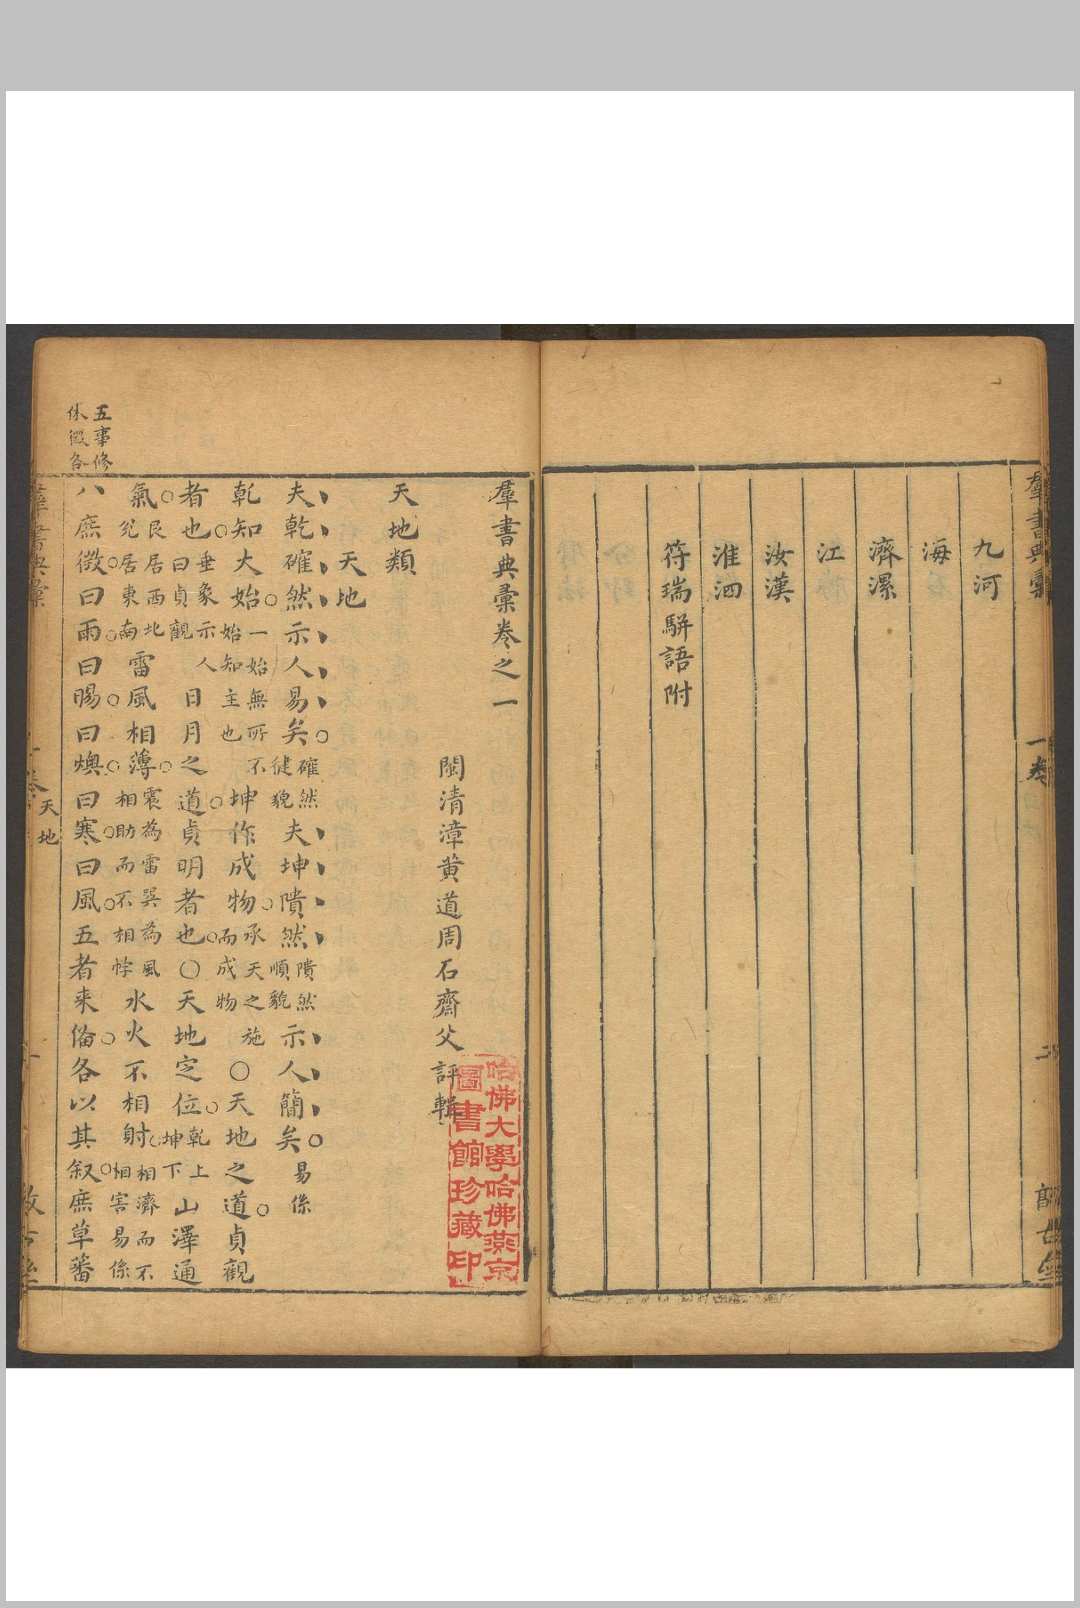 羣書典彙
一卷
九河
海
濟漯
江
汝漢
淮泗
符瑞駢語附
羣書典彙卷之一
閩清漳黄道周石齋父評輯
哈佛大學哈佛燕京
圖書館珍藏印
天地類
天地
夫乾確然示人易矣確然健貌夫坤隤然隤然順貌示人簡矣易係
乾知大始一始無所不始知主也坤作成物承天之施而成物○天地之道貞觀
者也垂象示人曰貞觀日月之道貞明者也○天地定位乾上坤下山澤通
氣艮居西北兌居東南雷風相薄震為雷巽為風相助而不相悖水火不相射相濟而不相害易係
八庶徵曰雨曰暘曰燠曰寒曰風五者来偹各以其叙庶草蕃
五事修
休徵各
天地